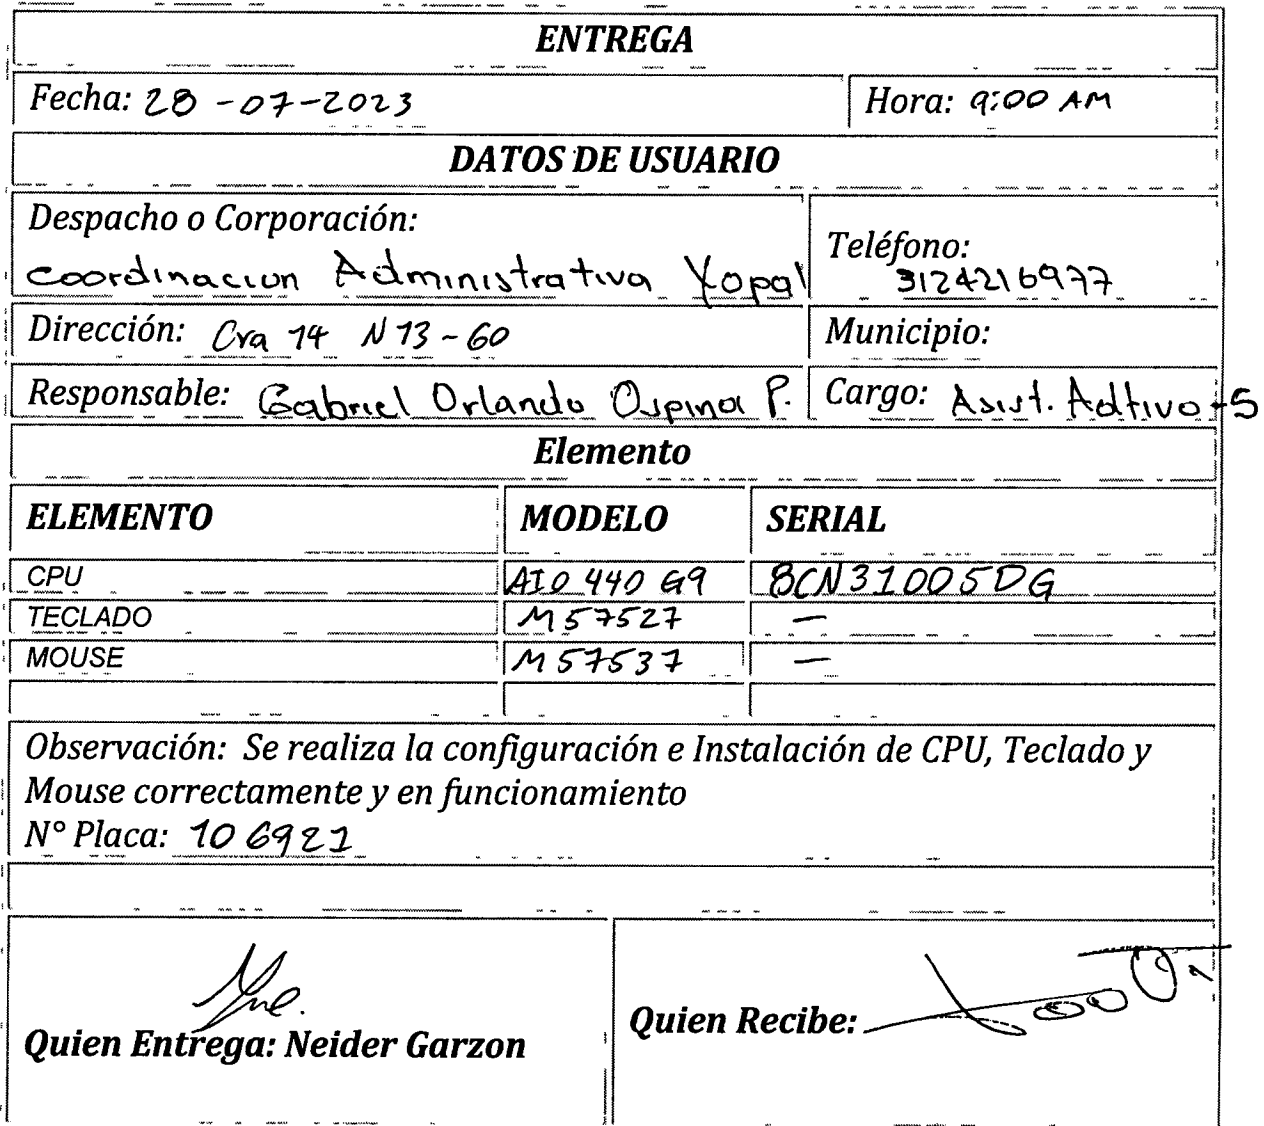 ENTREGA
Fecha: 28-07-2023 Hora: 9:00 AM
DATOS DE USUARIO
Despacho o Corporación:
Coordinacion Administrativa Yopal
Teléfono:
3124216977
Dirección: Cra 14 N 13-60 Municipio:
Responsable: Gabriel Orlando Ospina P. Cargo: Asist. Adtivo-5
Elemento
ELEMENTO MODELO SERIAL
CPU AIO 440 G9 8CN31005DG
TECLADO M57527 —
MOUSE M57537 —
Observación: Se realiza la configuración e Instalación de CPU, Teclado y
Mouse correctamente y en funcionamiento
N° Placa: 106921
Quien Entrega: Neider Garzon
Quien Recibe: